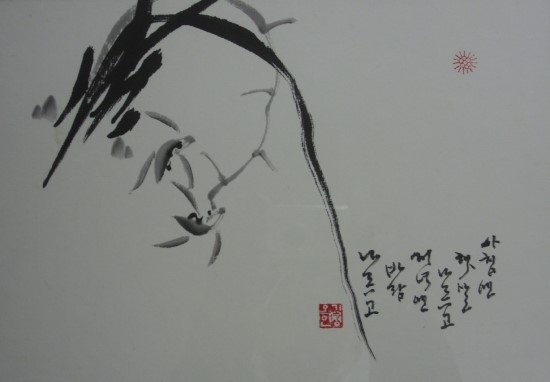 아침엔
나르고
저녁엔
바람
나르고